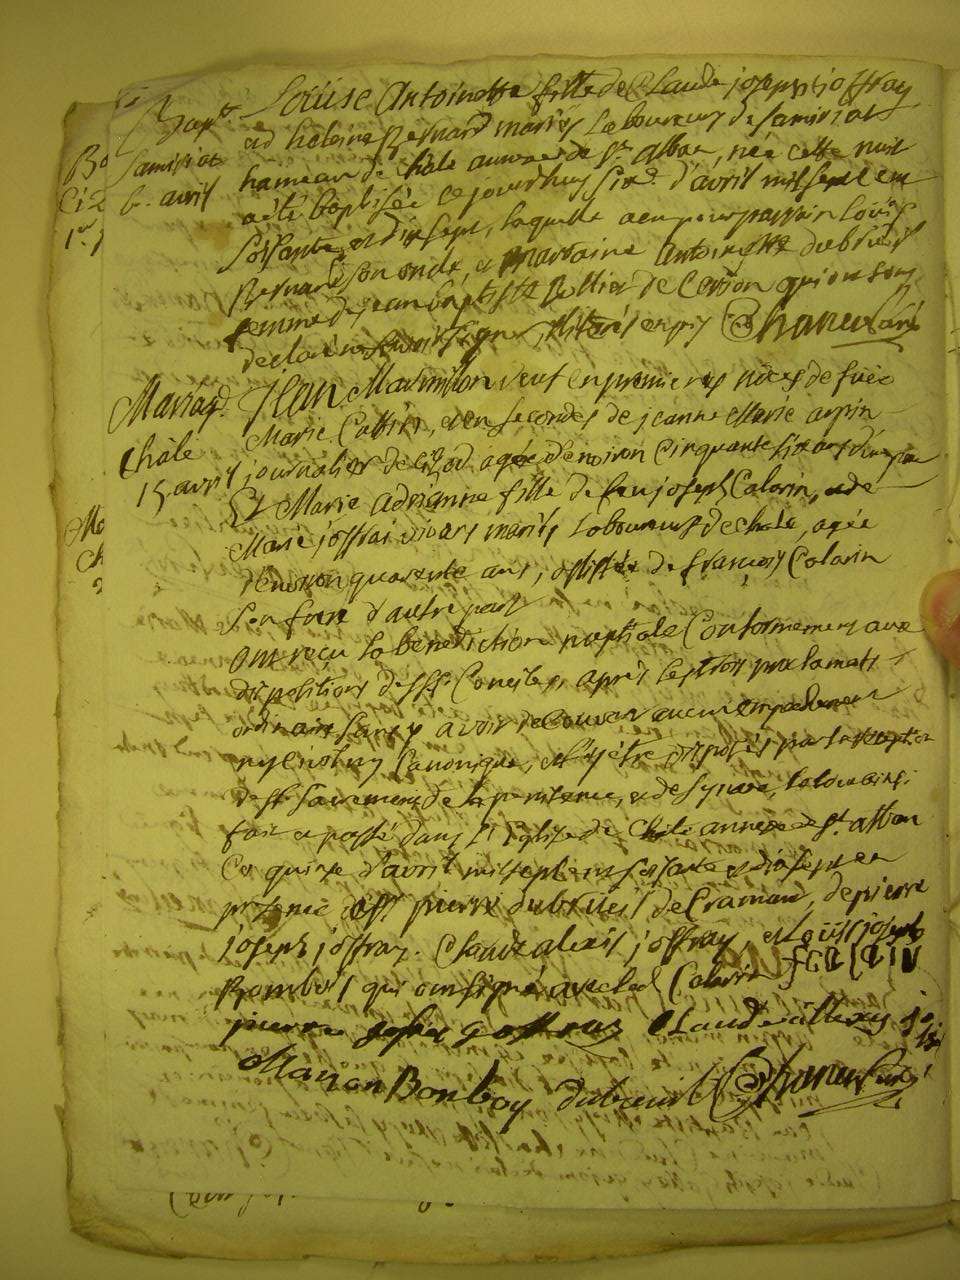 Bapt.
Samisiat
6. avril
Louise Antoinette fille de Claude joseph joffray
et helaine Bernard mariés Laboureurs de Samisiat
hameau de Châle annexe de St. alban, née cette nuit
a été baptisée ce jourdhuy six d'avril mil sept cent
soixante et dix sept, laquelle a eu pour parrain Louis
Bernard son oncle, et marraine antoinette dubreüil
femme de jean baptiste Rollier de Cerdon qui ont
declaré ne savoir signer,
Mariag.
Châle
15. avril
JEan Maximilien veuf en premieres nôces de
Marie, et en secondes de jeanne Marie arpin
journalier de agé d'environ Cinquante six ans d'une part
Et Marie adrianne fille de feu joseph Colarin, et de
Marie joffrai vivans mariés Laboureurs de chale, agée
d'environ quarante ans, assistée de françois Colarin
son frere d'autre part
Ont reçu la bénédiction nuptiale Conformement aux
dispositions des Sts. Conciles, après les trois proclamat.
ordinaires sans y avoir decouvert aucun empechement
ny civil ny Canonique, et s'y être disposés par la reception
des Sts. sacremens de la penitence, et de
fait et passé dans l'Eglise de Châle annexe de St. alban
Ce quinze d'avril mil sept cent soixante et dix sept en
presence de pierre dubreüil de Craman, de pierre
joseph joffray, Claude alexis joffray et Loüis joseph
qui ont signé avec led. Colarin
pierre josep goffray Claude allexis
Bonboy dubreuil